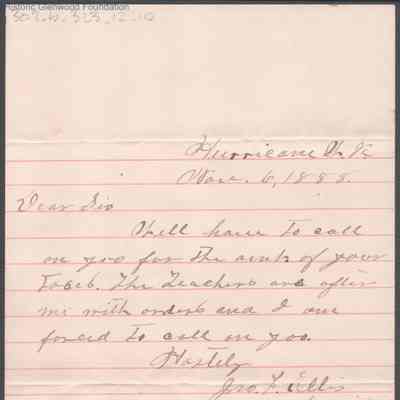 Historic Glenwood Foundation
Hurricane W. Va
Nov. 6, 1888.
Dear Sir
Will have to call
on you for the amt of your
Taxes. The Teachers are after
me with orders and I am
forced to call on you.
Hastily
Jno. F. Ellis